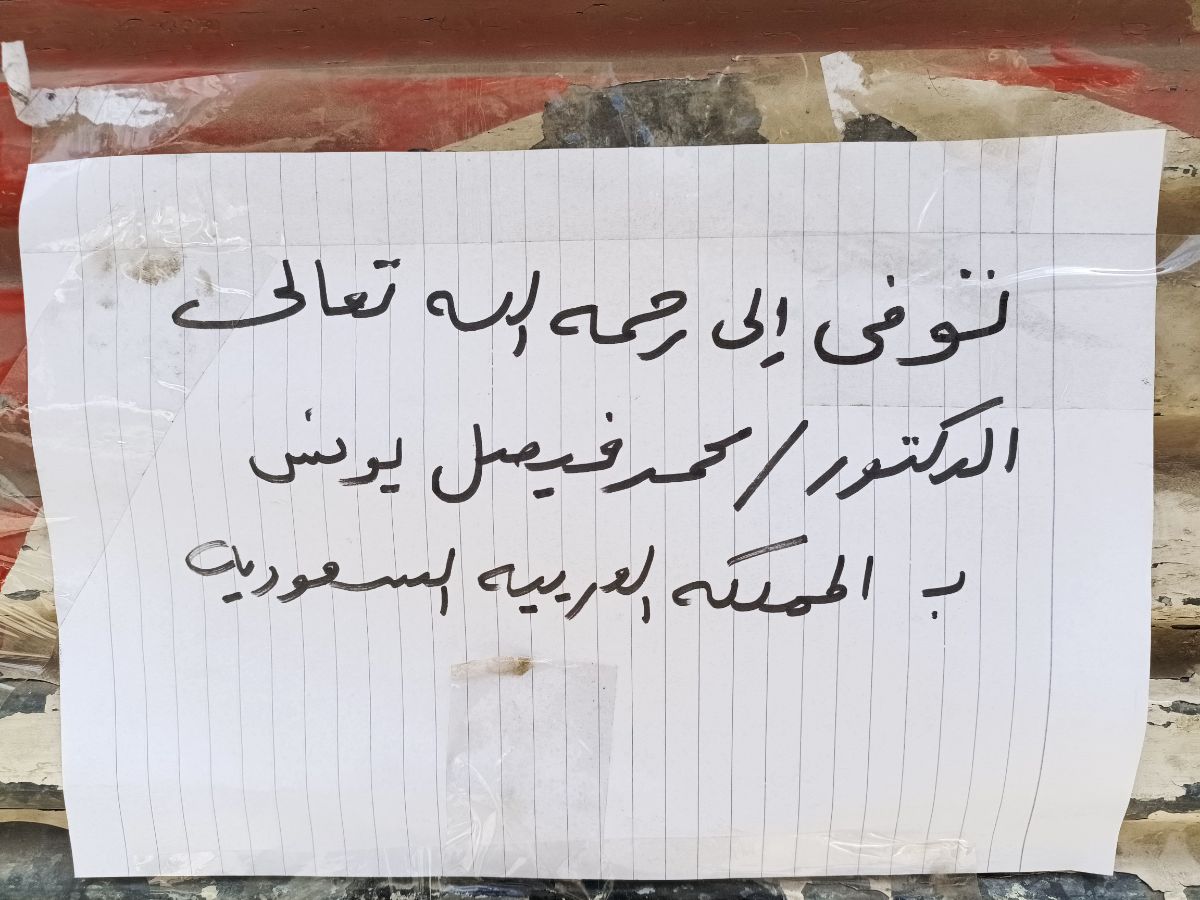 توفى إلى رحمه الله تعالى
الدكتور / محمد فيصل يونس
ب المملكه العربيه السعوديه